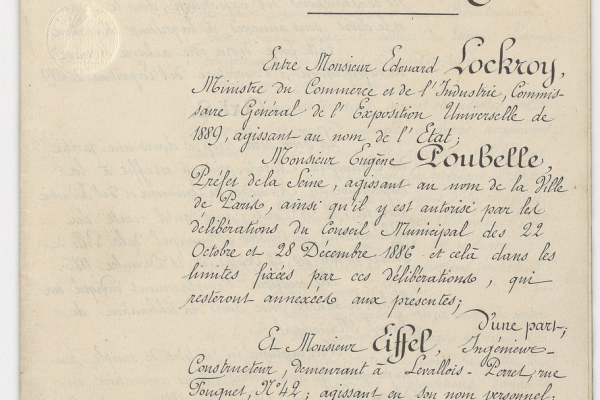 Entre Monsieur Edouard Lockroy,
Ministre du Commerce et de l'Industrie, Commis-
saire Général de l'Exposition Universelle de
1889, agissant au nom de l'Etat;
Monsieur Eugène Poubelle,
Préfet de la Seine, agissant au nom de la Ville
de Paris, ainsi qu'il y est autorisé par les
délibérations du Conseil Municipal des 22
Octobre et 28 Décembre 1886 et celà dans les
limites fixées par ces délibérations, qui
resteront annexées aux présentes;
D'une part;
Et Monsieur Eiffel, Ingénieur-
Constructeur, demeurant à Levallois-Perret, rue
Fouquet, N° 42; agissant en son nom personnel;